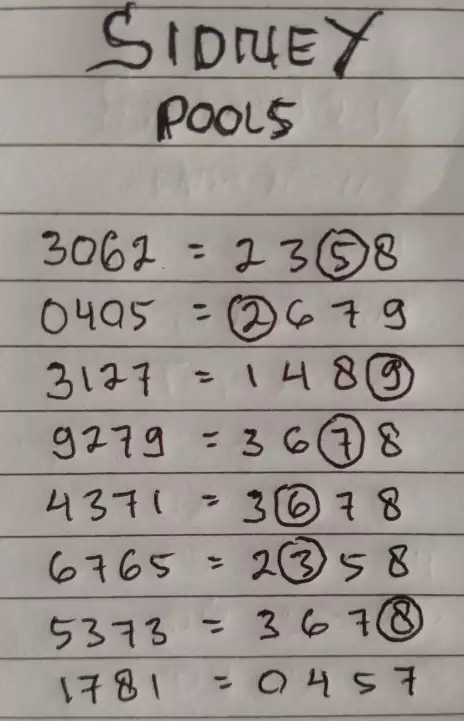 SIDNEY
POOLS
3062 = 2358
0495 = 2679
3127 = 1489
9279 = 3678
4371 = 3678
6765 = 2358
5373 = 3678
1781 = 0457